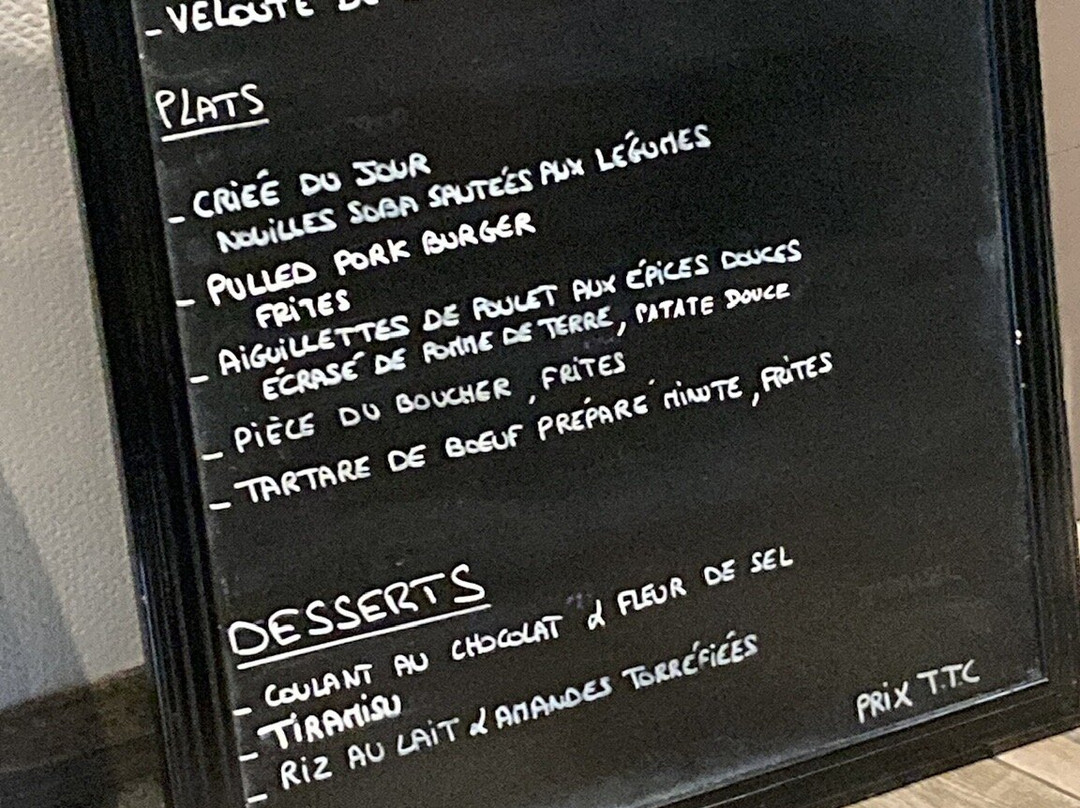 - VELOUTÉ
PLATS
- CRIEÉ DU JOUR
NOUILLES SOBA SAUTEÉS AUX LÉGUMES
- PULLED PORK BURGER
FRITES
- AIGUILLETTES DE POULET AUX ÉPICES DOUCES
ÉCRASÉ DE POMME DE TERRE, PATATE DOUCE
- PIÈCE DU BOUCHER, FRITES
- TARTARE DE BOEUF PRÉPARÉ MINUTE, FRITES
DESSERTS
- COULANT AU CHOCOLAT & FLEUR DE SEL
- TIRAMISU
- RIZ AU LAIT & AMANDES TORRÉFIÉES
PRIX T.TC